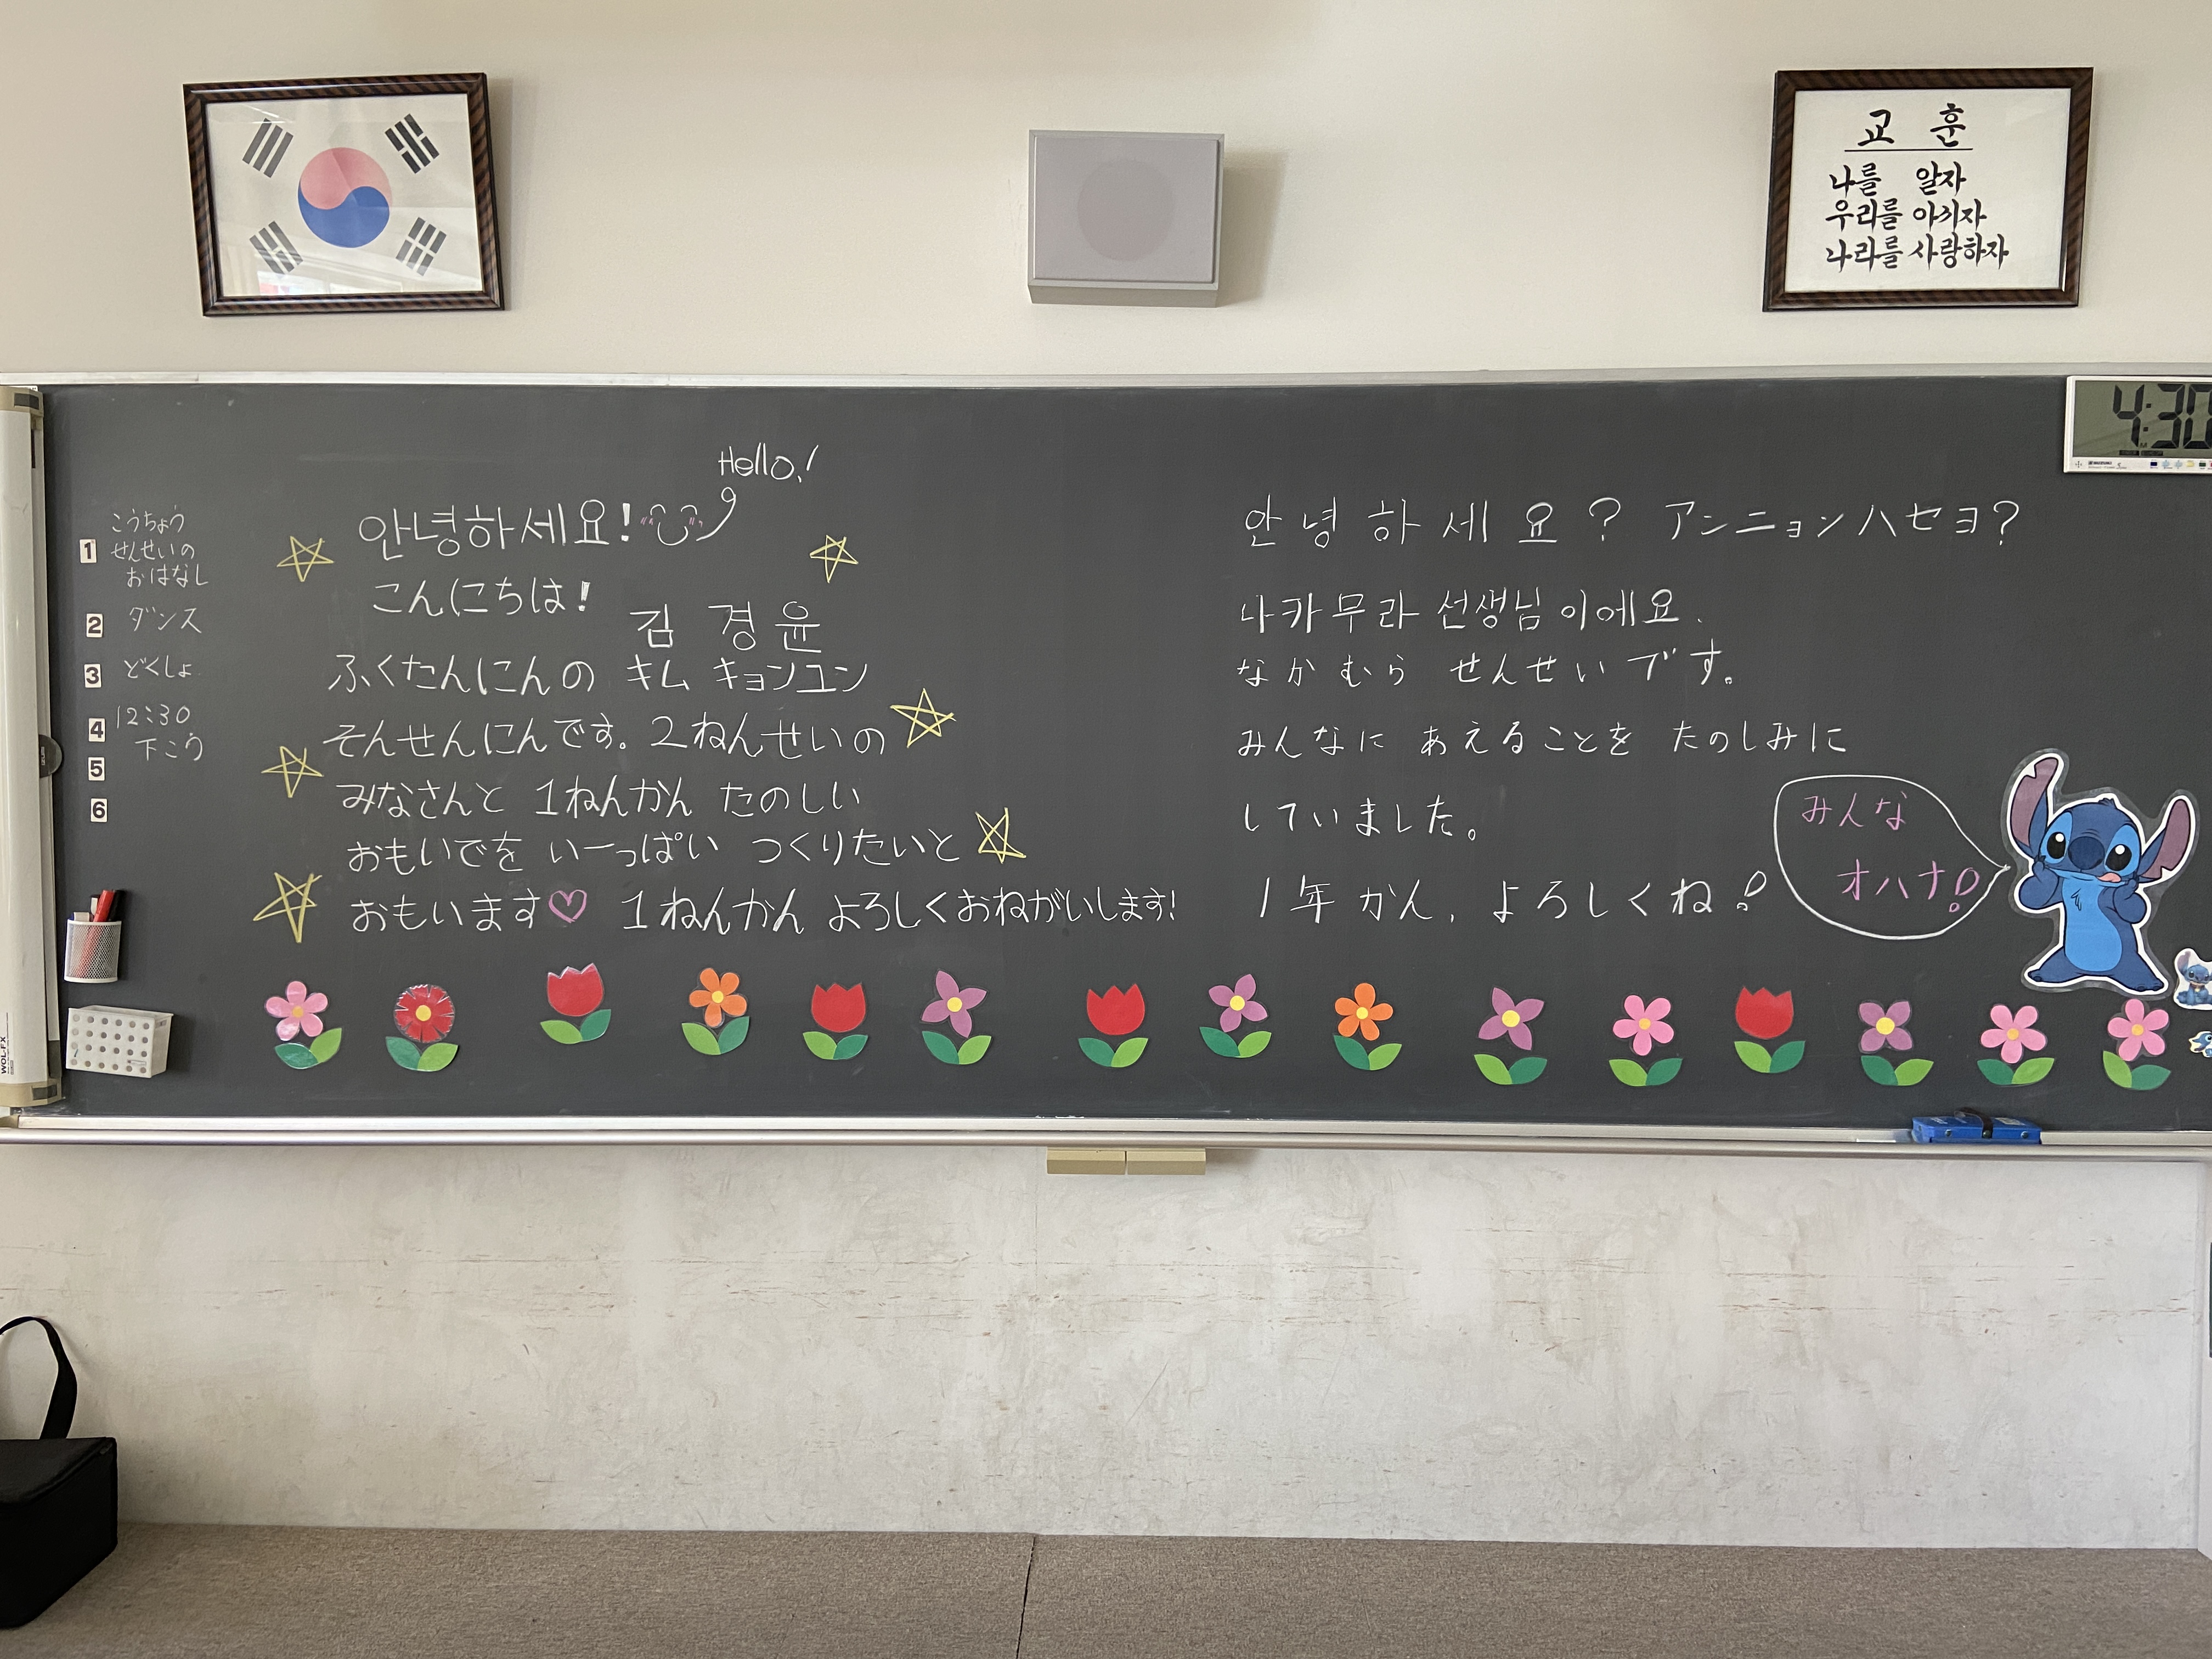 교 훈
나를 알자
우리를 아끼자
나라를 사랑하자
4:30
1 こうちょう
せんせいの
おはなし
2 ダンス
3 どくしょ
4 12:30
下こう
5
6
Hello!
안녕하세요!
こんにちは!
김 경윤
ふくたんにんの キム キョンユン
そんせんにんです。2ねんせいの
みなさんと 1ねんかん たのしい
おもいでを いーっぱい つくりたいと
おもいます♡ 1ねんかん よろしくおねがいします!
안녕하세요? アンニョンハセヨ?
나카무라 선생님이에요.
なかむら せんせいです。
みんなに あえることを たのしみに
していました。
1年かん、よろしくね!
みんな
オハナ!
WOL-FX